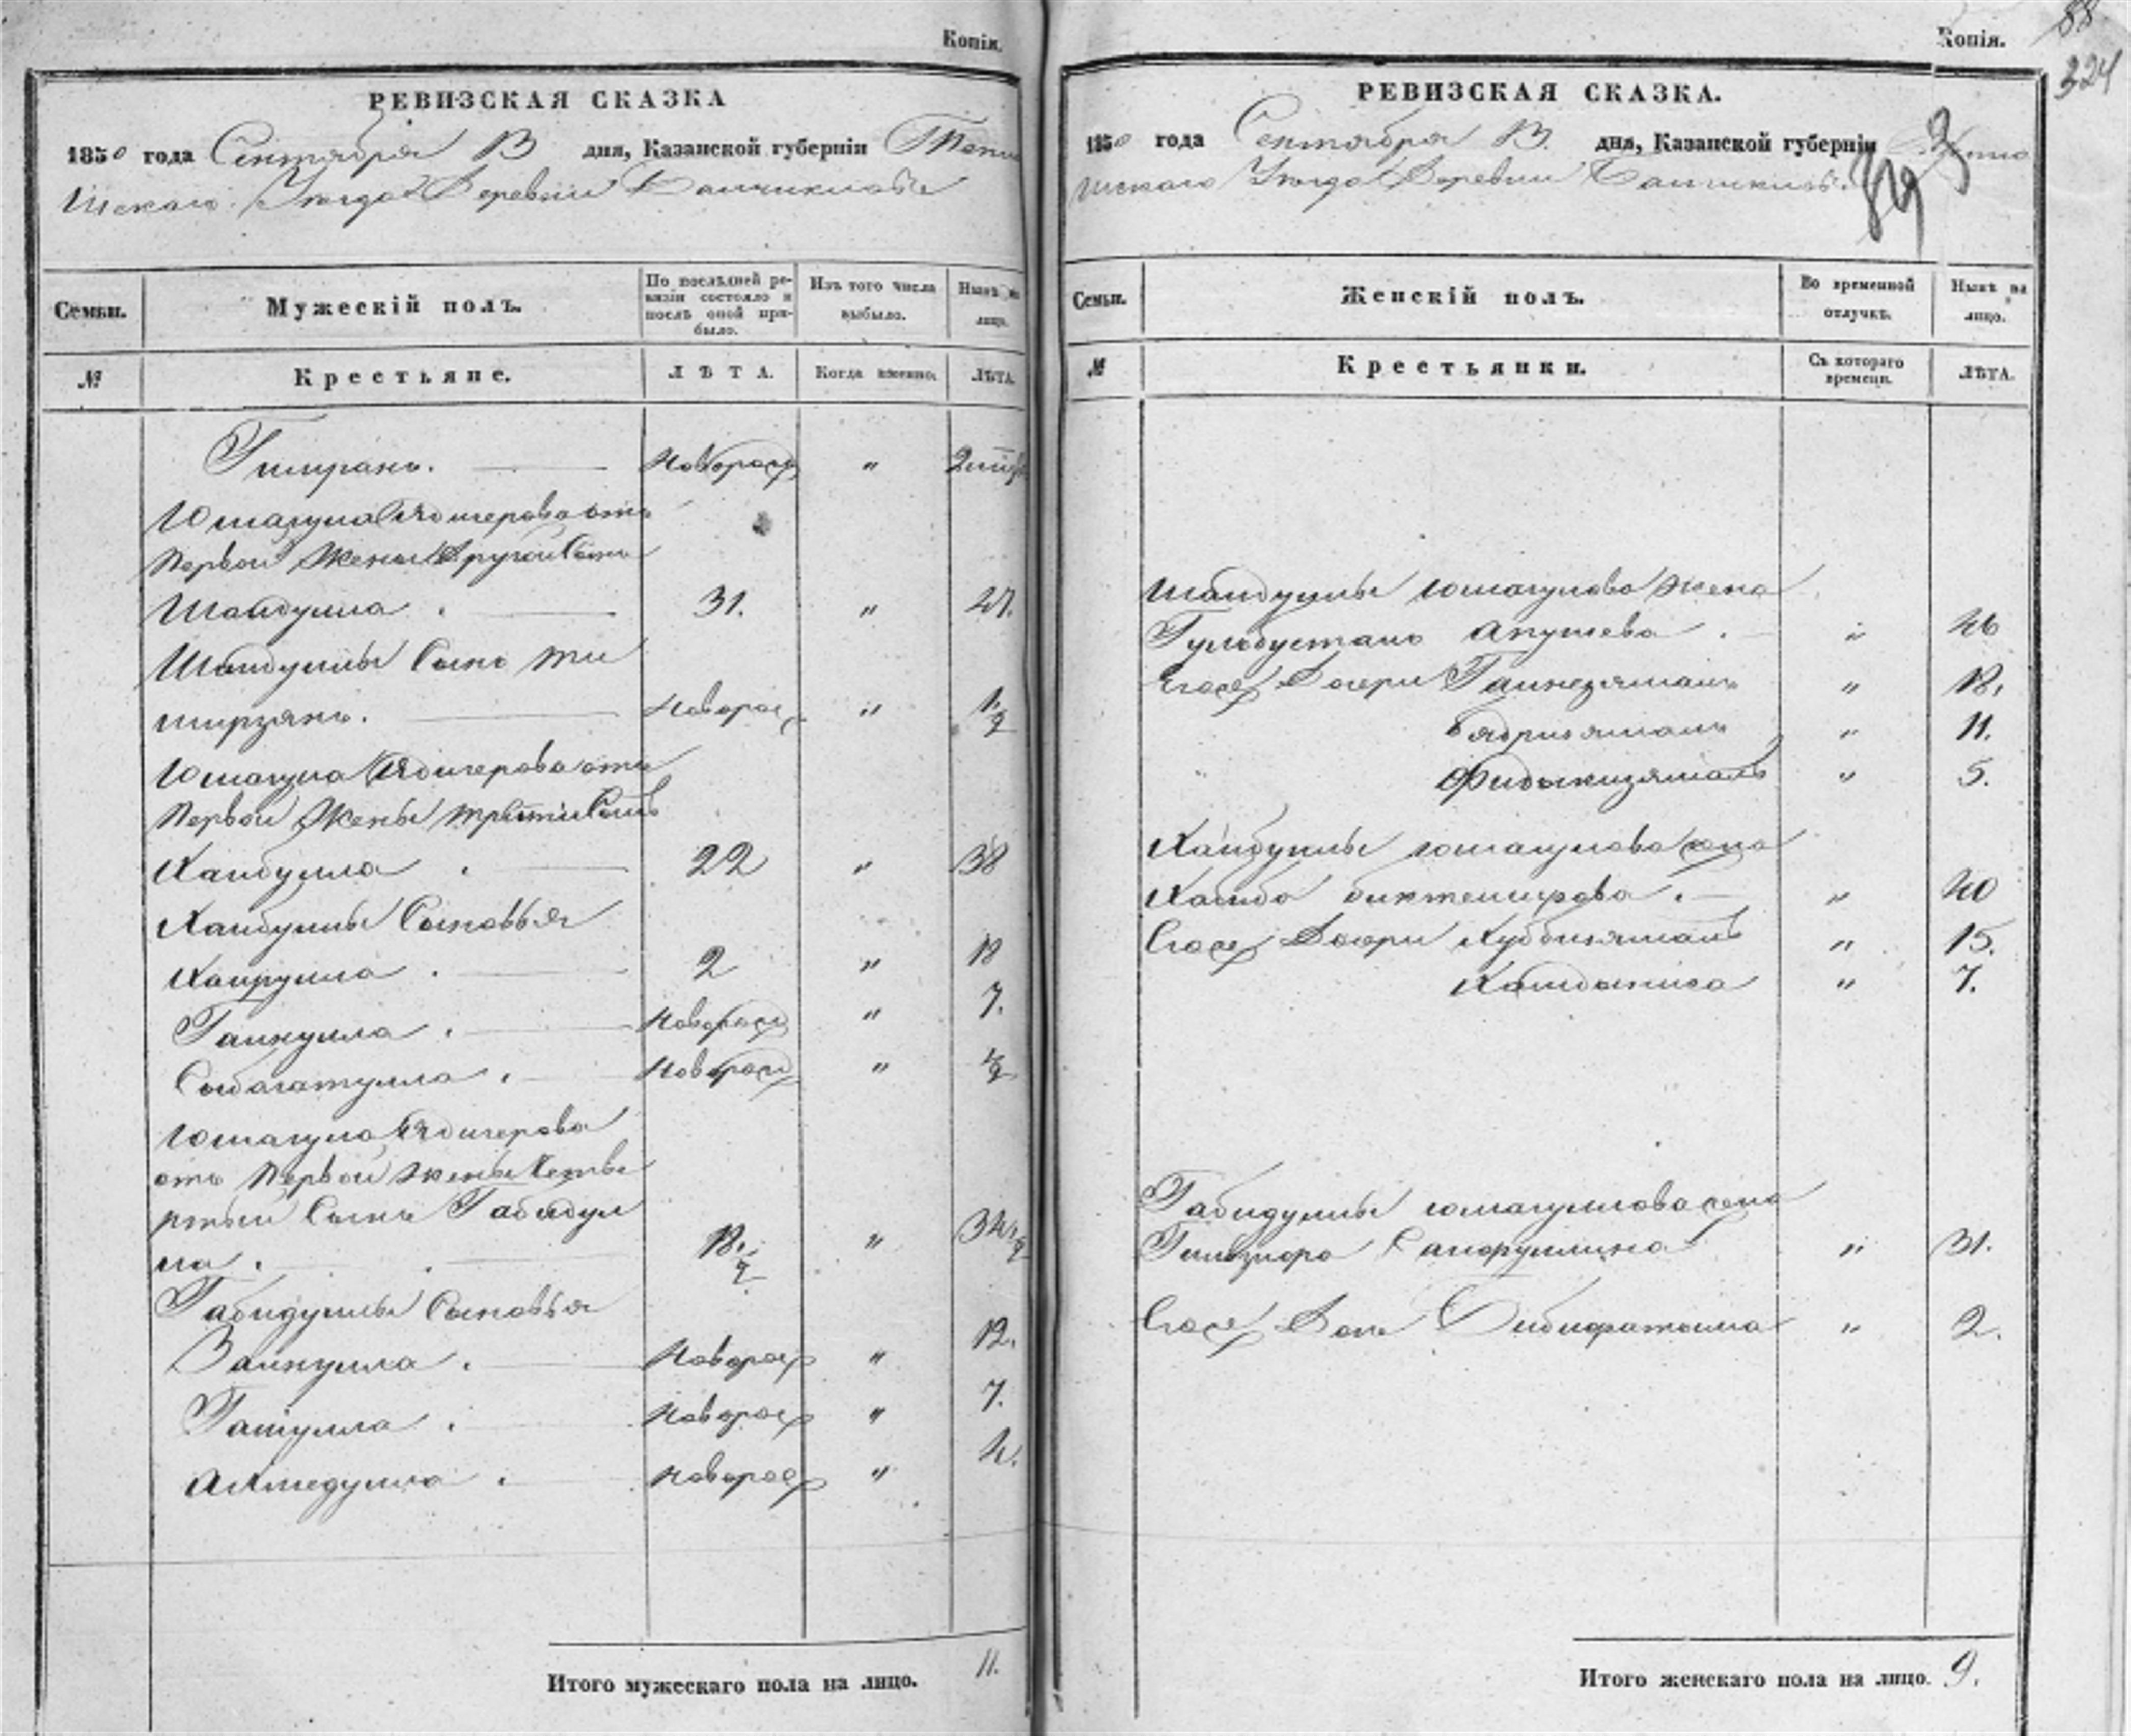 Копія.
РЕВИЗСКАЯ СКАЗКА
1850 года Сентября 13 дня, Казанской губерніи Тетю
шскаго Уезда Деревни
Семьи. Мужескій полъ. По послѣдней ревизіи состояло и послѣ оной прибыло. Изъ того числа выбыло. Нынѣ на лицо.
№ Крестьяне. ЛѢТА. Когда именно. ЛѢТА.
Новорож " 2
Юмагула Ядигерова отъ
первой жены другой сынъ
Шайдулла . 31. " 47.
Шайдуллы сынъ ти
мирзянъ. Новорож " 1/2
Юмагула Ядигерова отъ
первой жены третій сынъ
Хайбулла . 22 " 38
Хайбуллы сыновья
Хайрулла . 2 " 18
Гайнулла . Новорож " 7.
Сибагатулла . Новорож " 1/2
Юмагула Ядигерова
отъ первой жены четве
ртый сынъ Габидул
ла . 18 1/2 " 34 1/2
Габидуллы сыновья
Зайнулла . Новорож " 12.
Новорож " 7.
Ахмедулла . Новорож " 4.
Итого мужескаго пола на лицо. 11.
Копія.
88
324
РЕВИЗСКАЯ СКАЗКА.
1850 года Сентября 13. дня, Казанской губерніи Тетю
шскаго Уезда Деревни
Семьи. Женскій полъ. Во временной отлучкѣ. Нынѣ на лицо.
№ Крестьянки. Съ котораго времени. ЛѢТА.
Шайдуллы Юмагулова жена
Гульбустанъ . " 46
Ево дочери " 18.
Бадриямалъ " 11.
" 5.
Хайбуллы Юмагулова жена
Хабиба Биктемирова . " 40
Ево дочери " 15.
" 7.
Габидуллы Юмагулова жена
" 31.
Ево дочь Бибифатыма " 2.
Итого женскаго пола на лицо. 9.